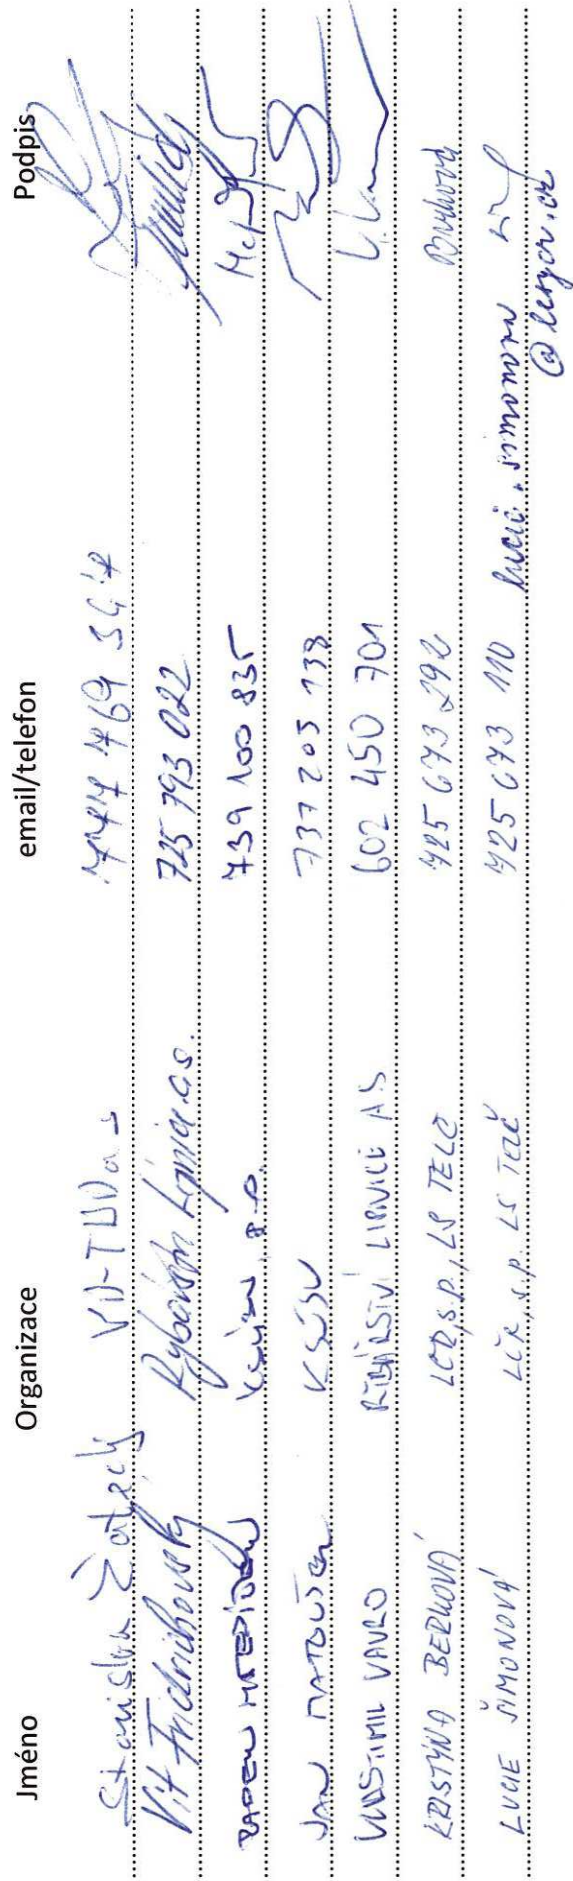 Jméno Organizace email/telefon Podpis
Stanislav Žatecký VD-TBD a.s
Vít Fridrichovský Rybářství Lipnice a.s. 725 793 022
RADEK 739 100 835
JAN MATOUŠEK KSÚSV 737 205 138
VLASTIMIL VAVRO RYBÁŘSTVÍ LIPNICE A S 602 450 701
KRISTÝNA BERKOVÁ LČR, s.p., LS TELČ 725 673 292 Berková
LUCIE ŠIMONOVÁ LČR, s.p. LS Telč 725 673 110 lucie.simonova
@lesycr.cz